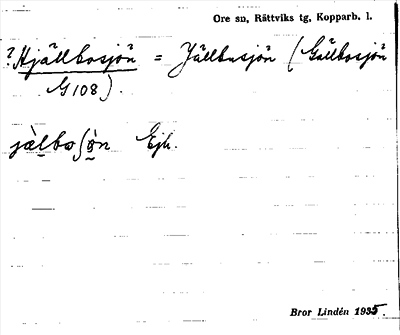 Ore sn, Rättviks tg, Kopparb. l.
? Hjällbosjön = Jällbusjön (Gällbosjön
G 108).
jälboʃön Ejh.
Bror Lindén 1935.